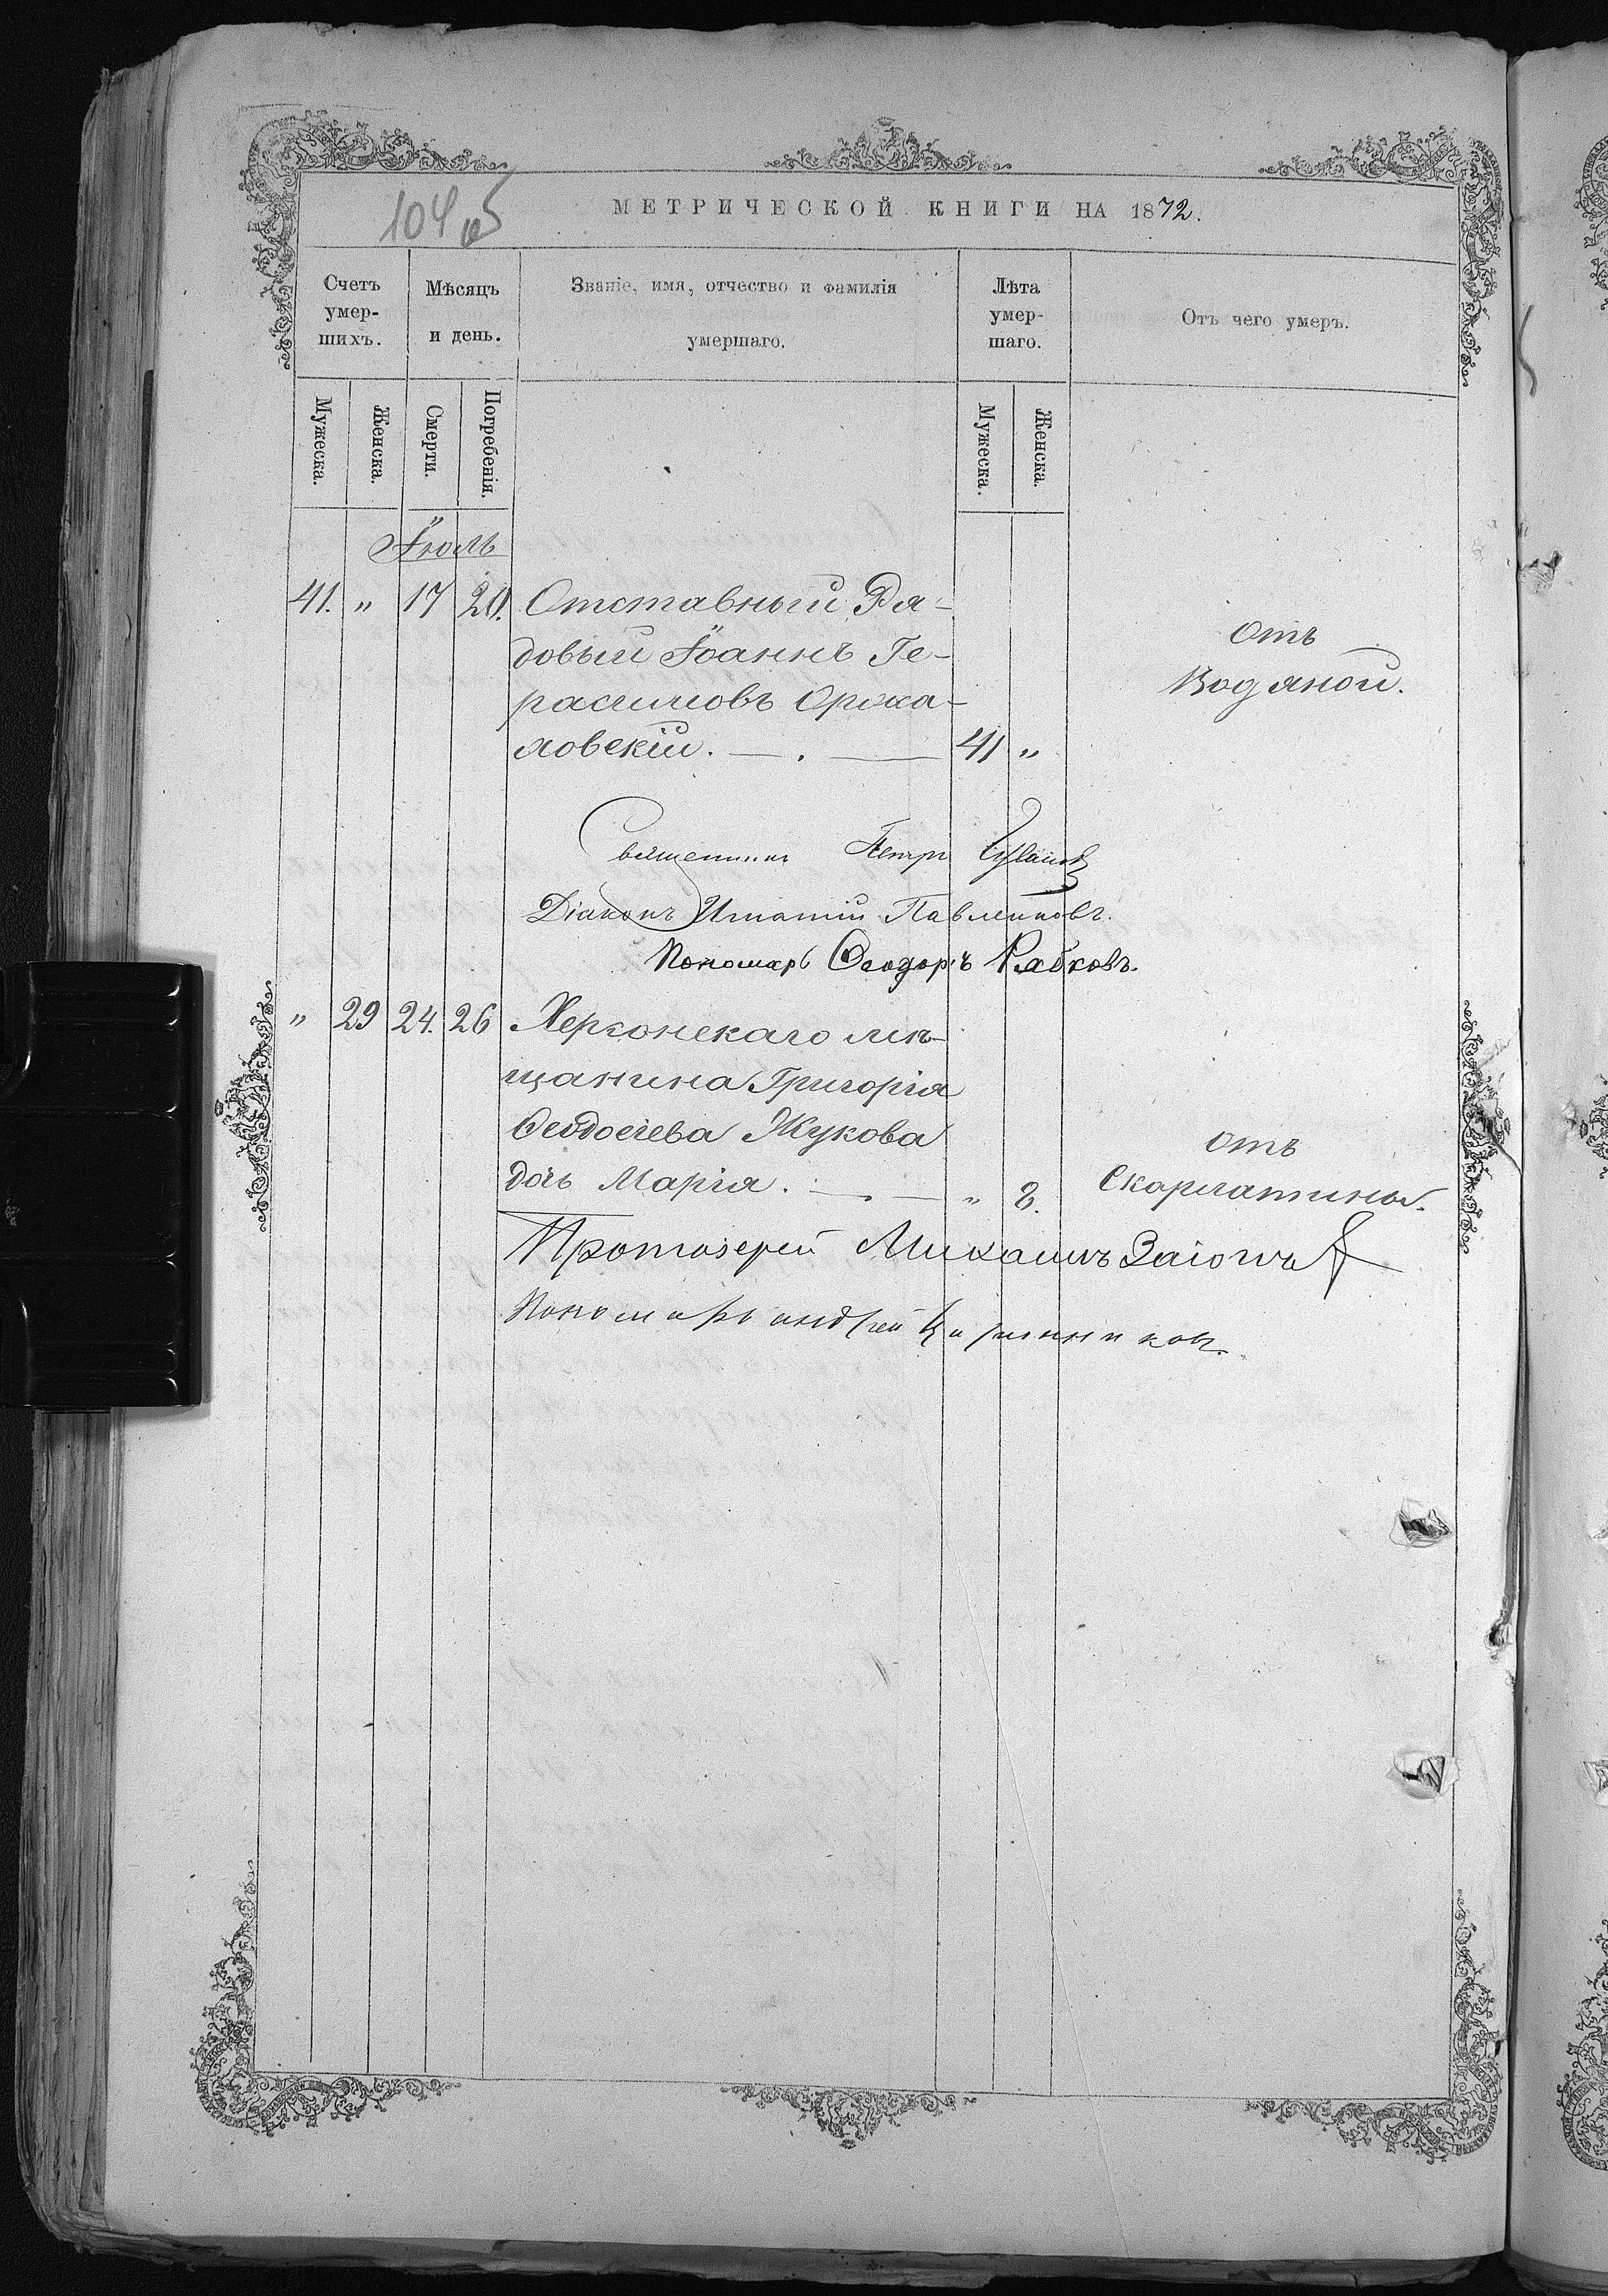 104 об
МЕТРИЧЕСКОЙ КНИГИ НА 1872.
Счетъ умер-шихъ.
Мѣсяцъ и день.
Званіе, имя, отчество и фамилія умершаго.
Лѣта умер-шаго.
Отъ чего умеръ.
Мужеска.
Женска.
Смерти.
Погребенія.
Мужеска.
Женска.
Іюль
41. " 17 20. Отставный Ря-
довый Іоаннъ Ге-
расимовъ
ловскій. 41 "
отъ
Водяной.
Священникъ Петръ
Діаконъ Игнатій Павленковъ.
Пономарь Ѳеодоръ Рябковъ.
" 29 24. 26 Херсонскаго мѣ-
щанина Григорія
Ѳеодосіева Жукова
дочь Марія. " 2.
отъ
Скарлатины.
Протоіерей Михаилъ
Пономарь Андрей